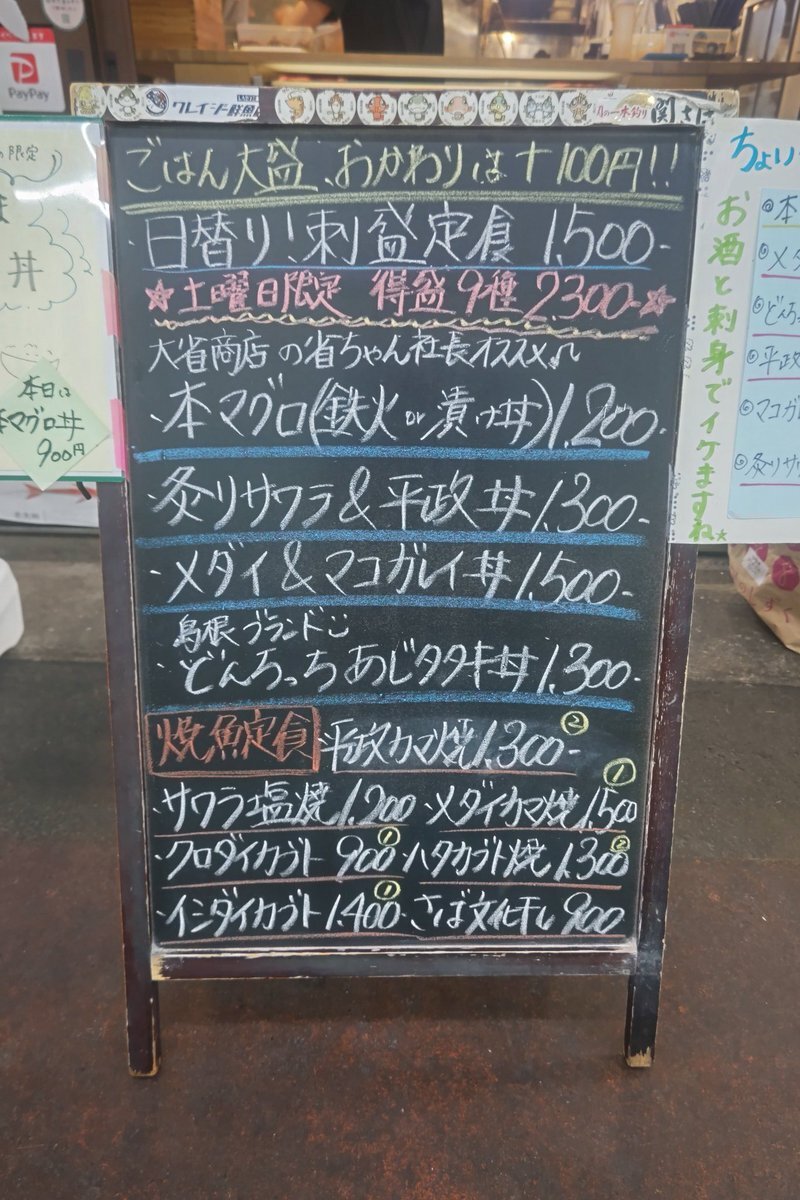 PayPay
クレイジー鮮魚
の一本釣り
関さば
ごはん大盛、おかわりは+100円!!
・日替り!刺盛定食 1,500-
☆土曜日限定 得盛9種 2300-☆
大省商店の省ちゃん社長オススメ♫
・本マグロ(鉄火or漬け丼)1,200-
・炙りサワラ&平政丼1,300-
・メダイ&マコガレイ丼1,500-
島根ブランド
・どんちっちあじタタキ丼1,300-
焼魚定食 平政カマ焼1,300- ②
・サワラ塩焼1,200 ・メダイカマ焼1,500 ①
・クロダイカブト 900 ① ・ハタカブト焼1,300 ②
・イシダイカブト1,400- ① さば文化干し900
の限定
丼
本日は
本マグロ丼
900円
ちょい
お酒と刺身でイケますね☆
本
メダ
どんち
平政
マコガ
炙りサワ